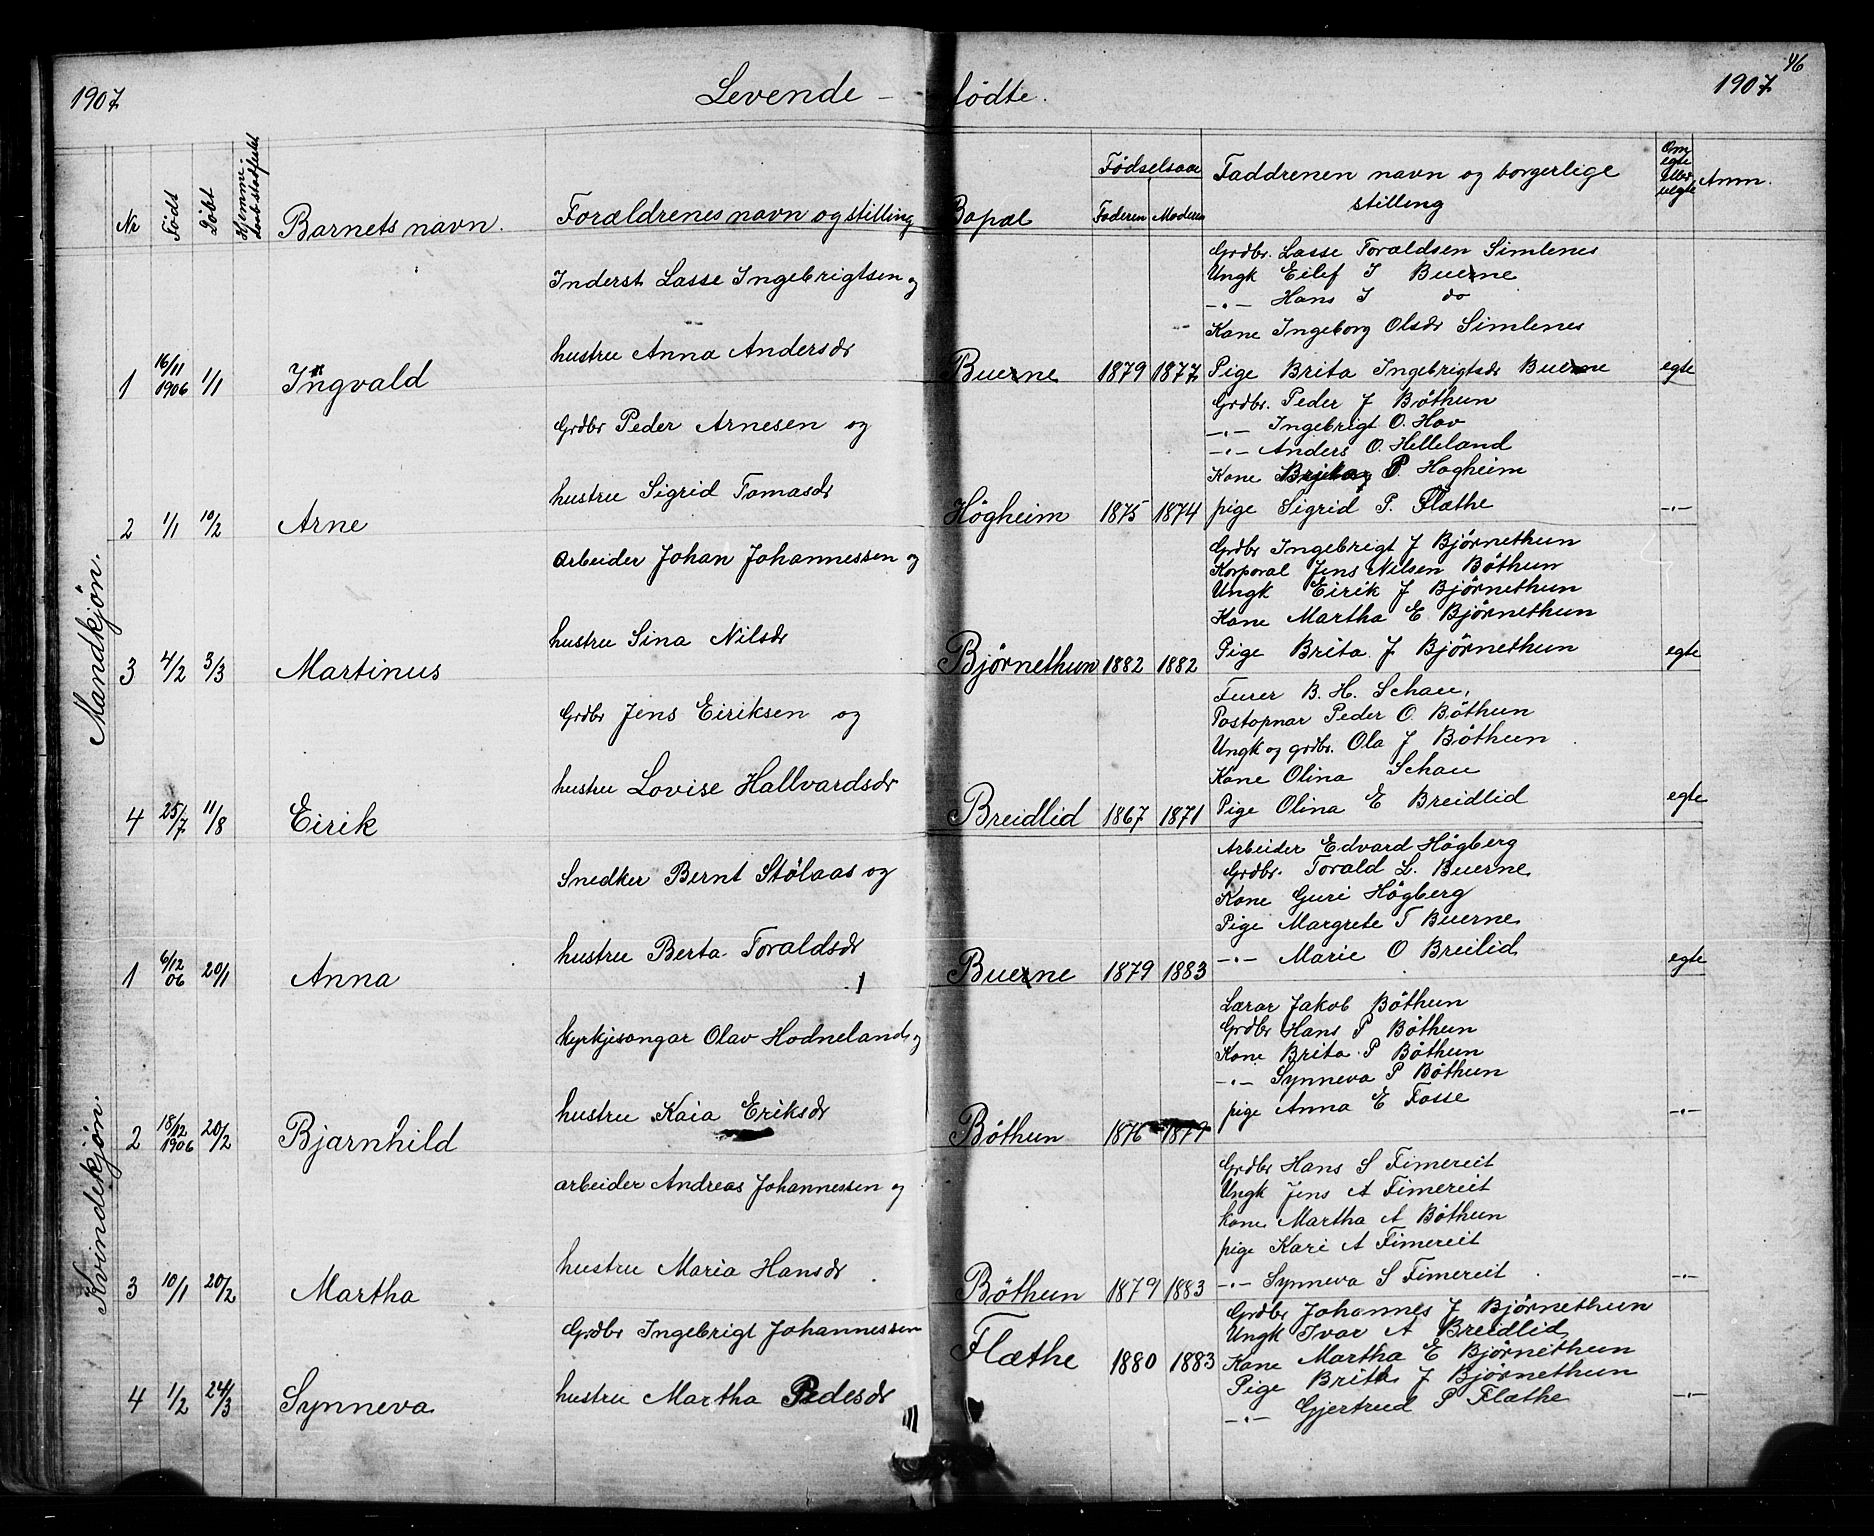 46
1907 Levende - fødte. 1907
Nr Født Døbt Hjemmedaab stadfestet Barnets navn. Forældrenes navn og stilling Bopæl Fødselsaar Faderen Moderen Faddrenen navn og borgerlige stilling Om egte eller uegte Anm.
Mandkjøn.
Inderst Lasse Ingebrigtsen og
hustru Anna Andersdr
1 16/11 1906 1/1 Ingvald Buerne 1879 1877 egte
Grdbr. Lasse Toraldsen Simlenes
Ungk Eilef I Buerne
-"- Hans I do
Kone Ingeborg Olsdr Simlenes
Pige Brita Ingebrigtsdr Buerne
Grdbr Peder Arnesen og
hustru Sigrid Tomasdr
2 1/1 10/2 Arne Högheim 1875 1874 -"-
Grdbr. Peder J Böthun
-"- Ingebrigt O. Hov
-"- Anders O. Helleland
Kone P Hogheim
pige Sigrid P. Flæthe
Arbeider Johan Johannessen og
hustru Sina Nilsdr
3 4/2 3/3 Martinus Björnethun 1882 1882 egte
Grdbr Ingebrigt J Björnethun
Korporal Jens Nilsen Böthun
Ungk Eirik J Björnethun
Kone Martha E Björnethun
Pige Brita J Björnethun
Grdbr Jens Eiriksen og
hustru Lovise Hallvardsdr
4 25/7 11/8 Eirik Breidlid 1867 1871 egte
Furer B. H. Schau,
Postopnar Peder O. Böthun
Ungk og grdbr. Ola J Böthun
Kone Olina Schau
Pige Olina E Breidlid
Kvindekjøn.
Snedker Bernt Stölaas og
hustru Berta Toraldsdr
1 6/12 06 20/1 Anna Buerne 1879 1883 egte
Arbeider Edvard Högberg
Grdbr. Torald L. Buerne
Kone Guri Högberg
Pige Margrete T Buerne
-"- Marie O Breilid
kyrkjesongar Olav Hodneland og
hustru Kaia Eriksdr
2 18/12 1906 20/2 Bjarnhild Böthun 1876 1879 -"-
Lærar Jakob Böthun
Grdbr Hans P Böthun
Kone Brita P Böthun
-"- Synneva P Böthun
pige Anna E Fosse
arbeider Andreas Johannessen og
hustru Maria Hansdr
3 10/1 20/2 Martha Böthun 1879 1883 -"-
Grdbr Hans S Fimereit
Ungk Jens A Fimereit
kone Martha A Böthun
pige Kari A Fimereit
-"- Synneva S Fimereit
Grdbr Ingebrigt Johannessen
hustru Martha Pedesdr
4 1/2 24/3 Synneva Flæthe 1880 1883 -"-
Grdbr Johannes J Björnethun
Ungk Ivar A Breidlid
Kone Martha E Björnethun
Pige Brita J Björnethun
-"- Gjertrud P Flæthe